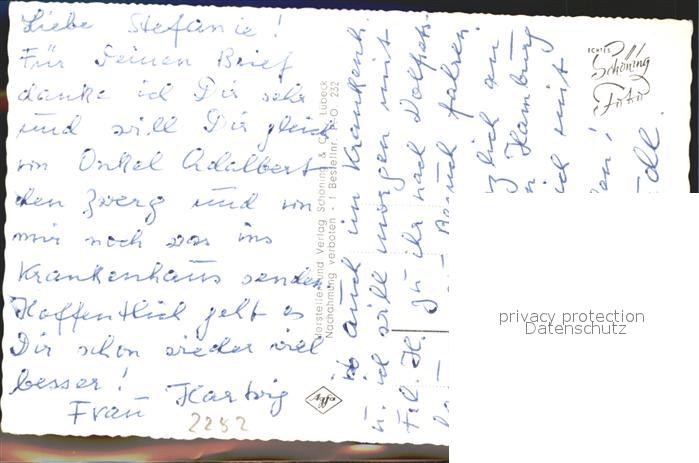 Liebe Stefanie!
Für Deinen Brief
danke ich Dir sehr
und will Dir gleich
von Onkel Adalbert
den Zwerg und von
mir noch was ins
Krankenhaus senden
Hoffentlich geht es
Dir schon wieder viel
besser!
Frau Hartwig
2252
Agfa
Hersteller und Verlag Schöning & Co., Lübeck
Nachahmung verboten - 1 Bestellnr. P.O. 232
auch im Krankenh.
u. ich will morgen mit
Frl. H. zu ihr nach
Besuch fahren.
lich an
Hamburg
mit
ECHTES
Schöning
Foto
privacy protection
Datenschutz